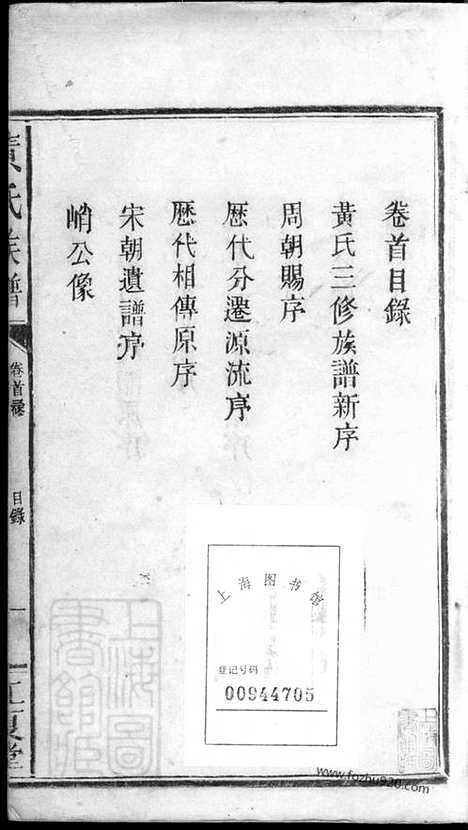 卷首目錄
黃氏三修族譜新序
周朝賜序
歷代分遷源流序
歷代相傳原序
宋朝遺譜序
峭公像
黃氏族譜
卷首
目錄
一
江夏堂
上海图书馆
登记号码
00944705
上海圖書館藏
www.fozhu920.com